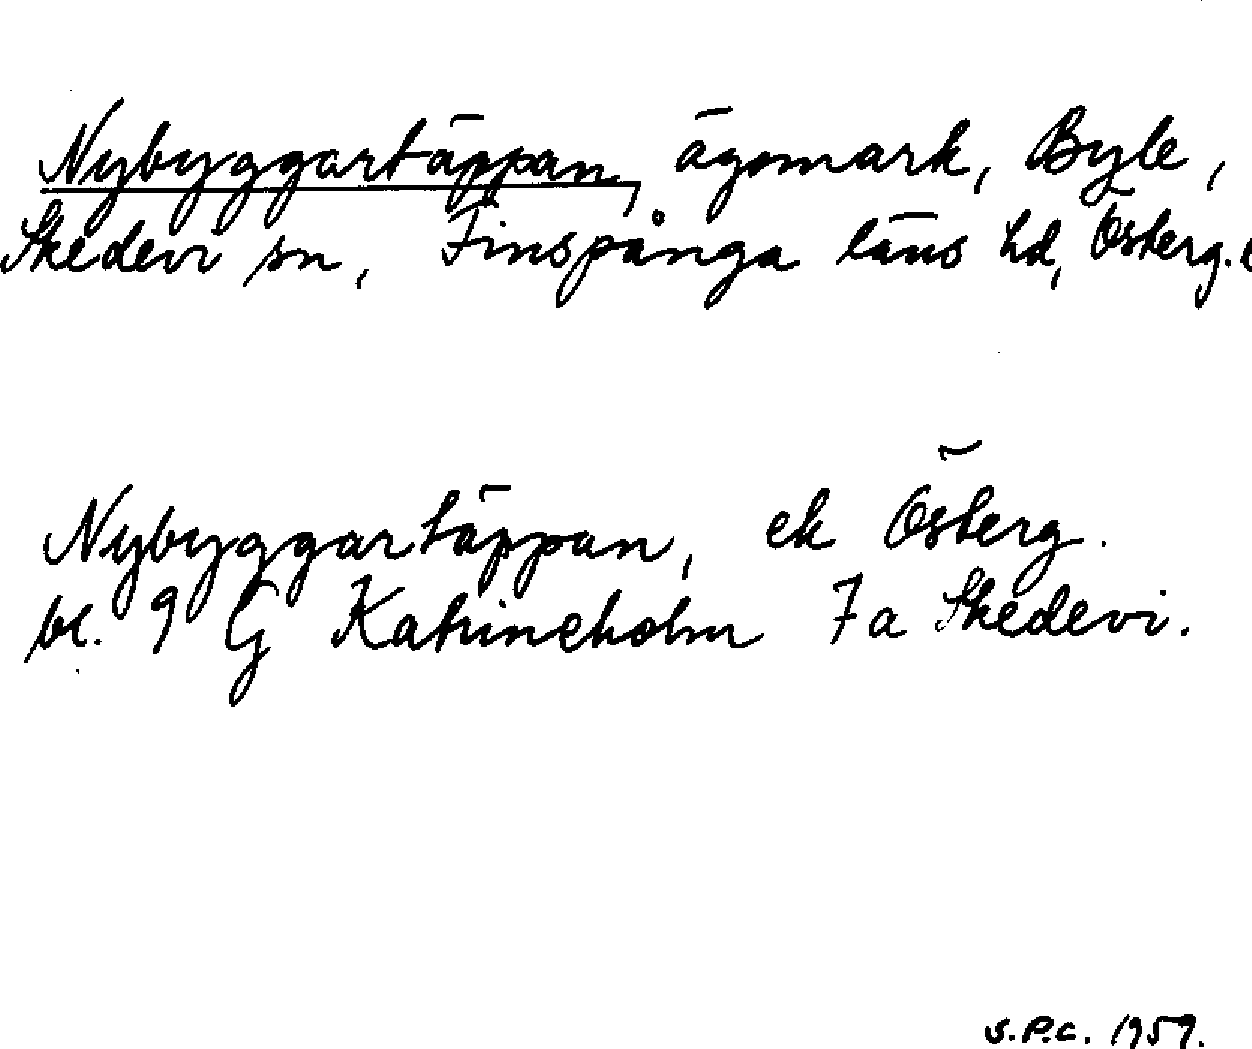 Nybyggartäppan, ägomark, Byle,
Skedevi sn, Finspånga läns hd, Österg. l
Nybyggartäppan, ek Österg.
bl. 9 G Katrineholm 7a Skedevi.
S.P.C. 1959.